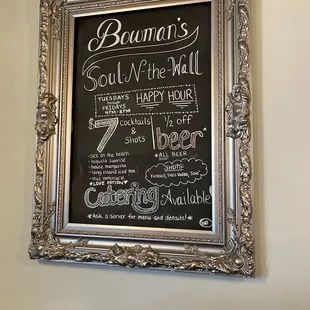 Bowman's
Soul·N·the·Wall
TUESDAYS
FRIDAYS
4PM-8PM
HAPPY HOUR
$7 cocktails
&
Shots
- Sex on the beach
- tequila sunrise
- house margarita
- long island iced tea
*LOVE POTION
1/2 off
beer
*ALL BEER
SHOTS:
Fireball, Tito's Vodka,
Catering Available
*Ask a server for menu and details!